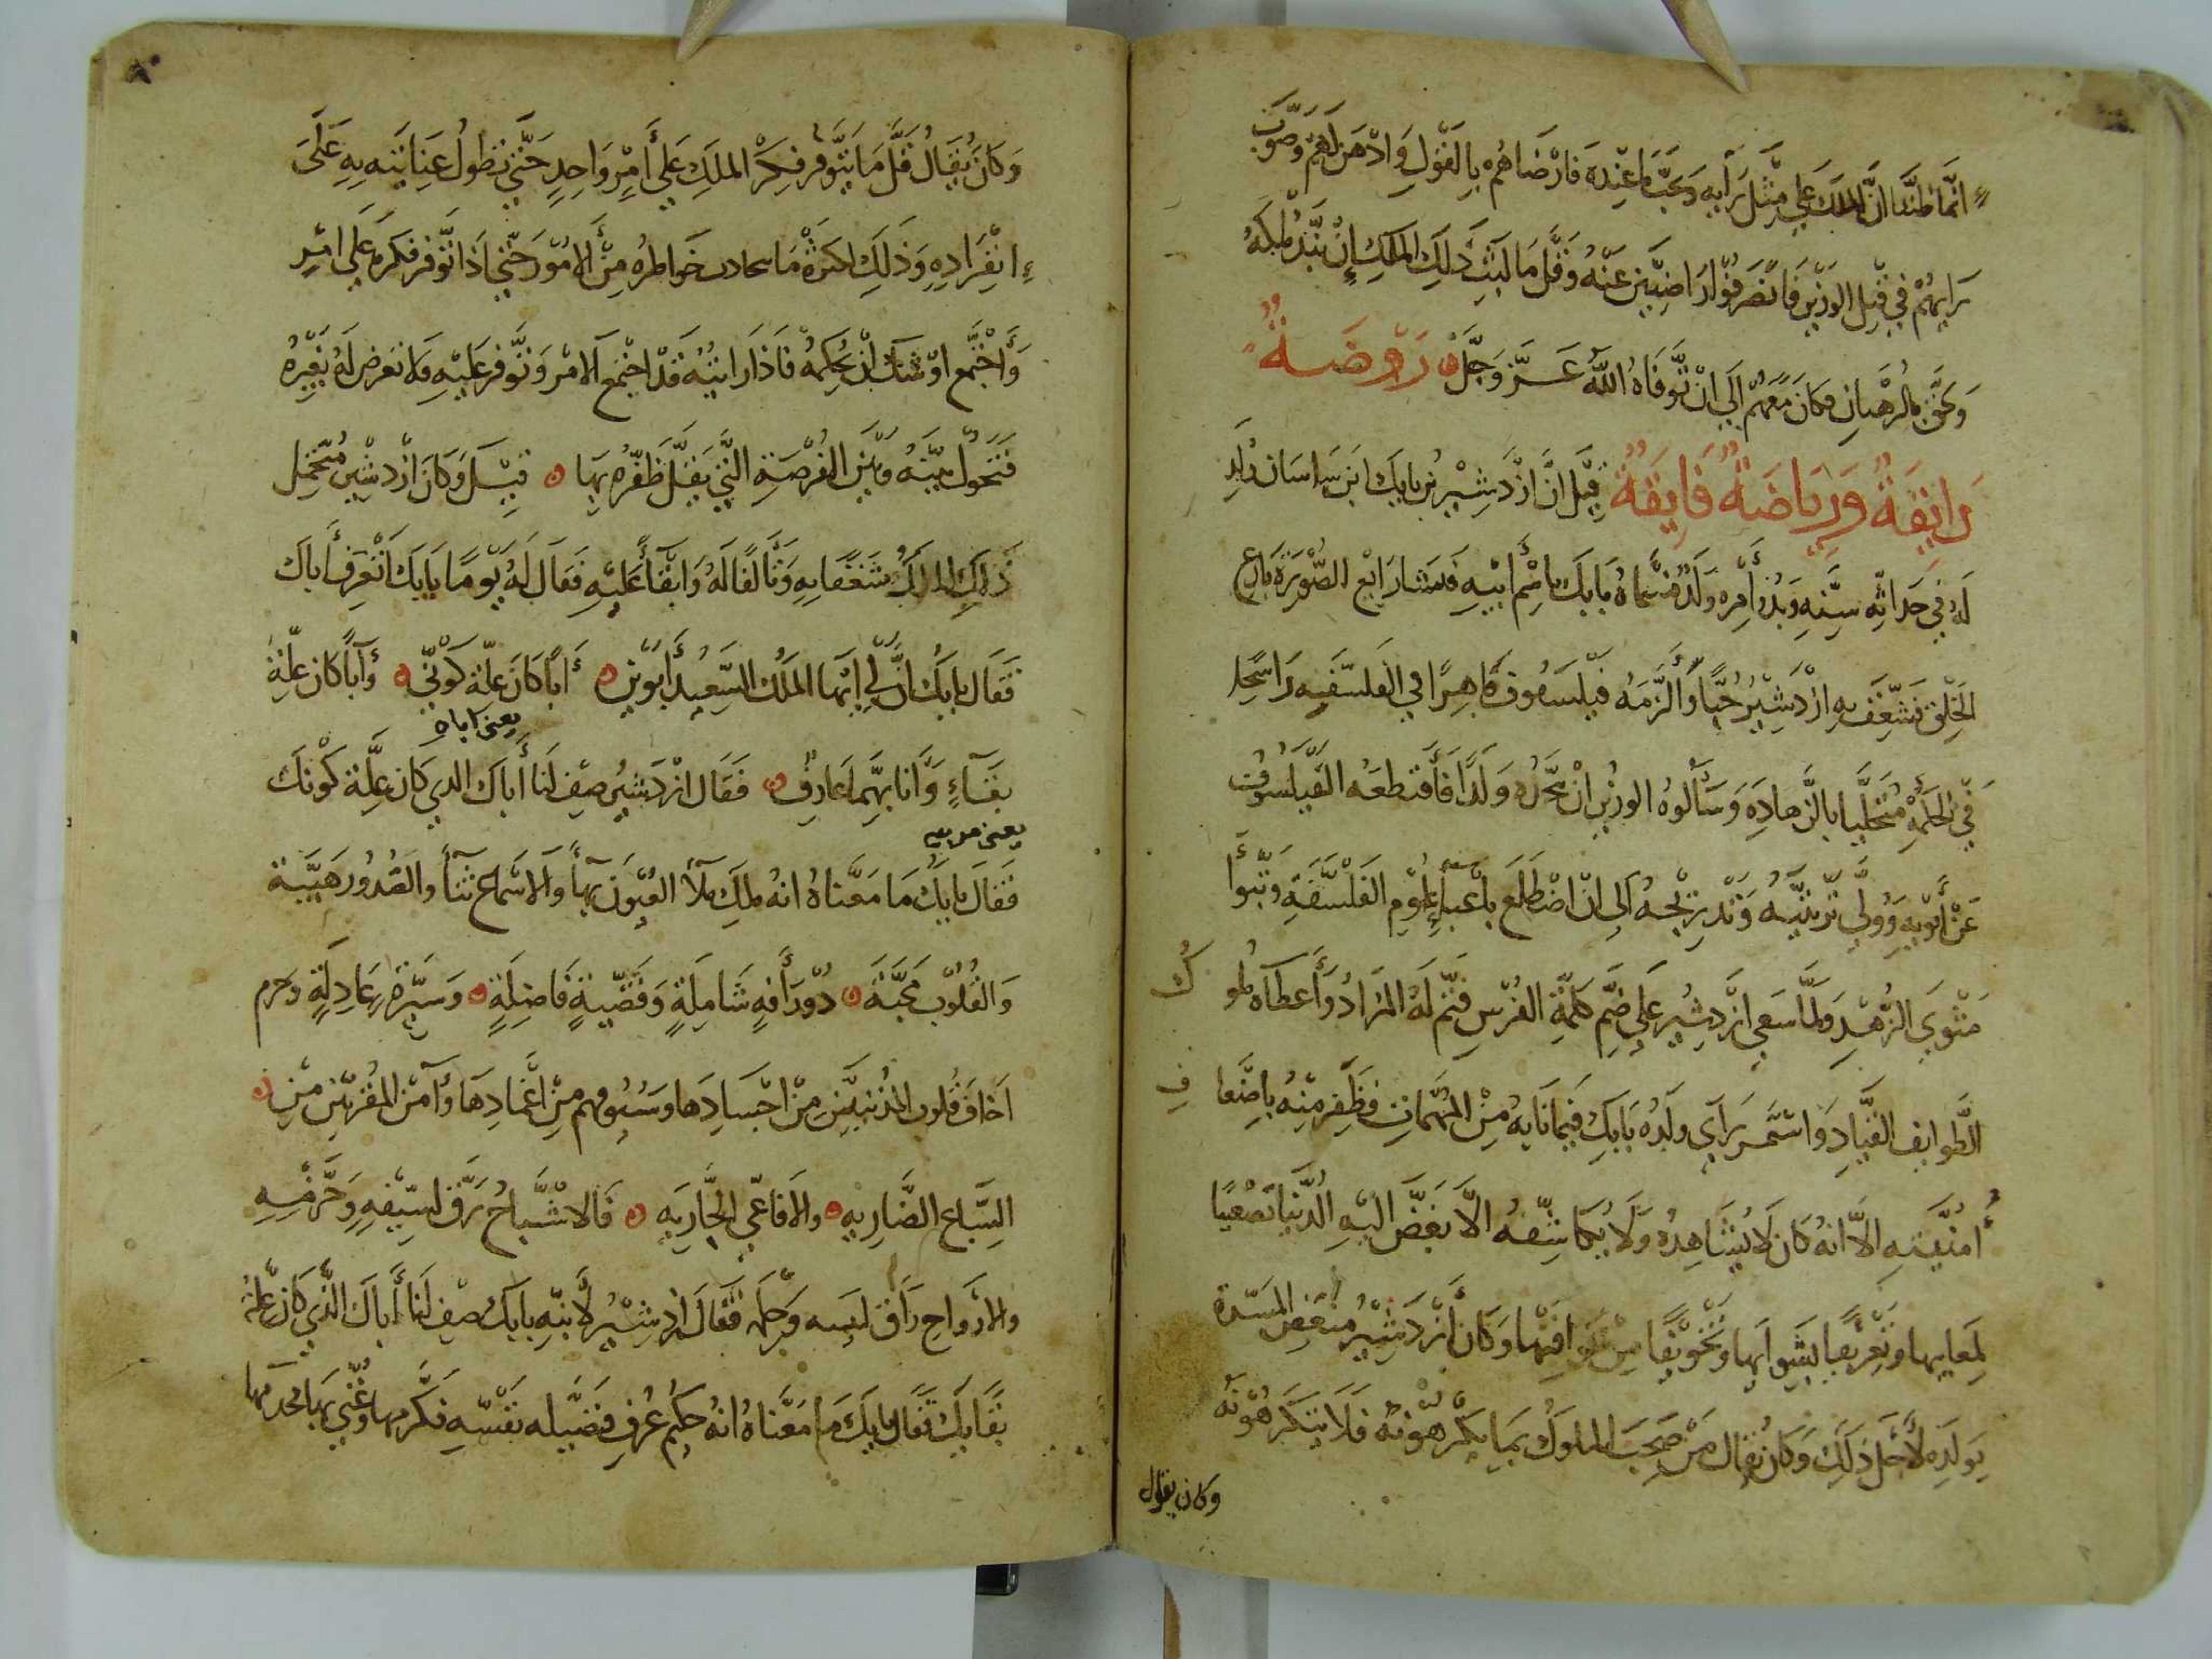 انما ظننا ان الملك على مثل رأيه وتحت ما عنده فارضاهم بالقول وادهن لهم وصوب
رايهم في قتل الوزير فانصرفوا راضيين عنه وقل ما لبث ذلك الملك ان نبذ ملكه
ولحق بالرهبان فكان معهم الى ان توفاه الله عز وجل روضة
رايقة ورياضة فايقة قيل ان ازدشير بن بابك ابن ساسان ولد
له في حداثة سنه وبدو أمره ولد فسماه بابك باسم ابيه فنشا رايع الصورة بارع
الخلق فشغف به ازدشير حبا والزمه فيلسوفا ماهرا في الفلسفه راسخا
في الحكمة متحليا بالزهادة وسألوه الوزير ان ولدا فاقتطعه الفيلسوف
عن أبويه وولي تربيته وتدريجه الى ان اضطلع باعباء علوم الفلسفة وتبوأ
مثوى الزهد ولما سعى ازدشير على ضم كلمة الفرس فتم له المراد وأعطاه ملوك
الطوايف القياد واستمر راي ولده بابك فيما نابه من المهمات فظفر منه باضعاف
أمنيته الا انه كان لا يشاهده ولا يكاشفه الا بغض اليه الدنيا تصغيا
لمعايبها وتعريفا بشوايبها وتخويفا من افتها وكان أزدشير منغص المسرة
بولده لأجل ذلك وكان يقال من صحب الملوك بما يكرهونه فلا يتكرهونه
وكان يقال
وكان يقال قل ما يتوفر فكر الملك على أمر واحد حتى تطول عنايته به على
انفراده وذلك لكثرة ما خواطره من الامور حتى اذا توفر فكره على امر
واجتمع اوشك ان يحكمه فاذا رايته قد اجتمع الامر وتوفر عليه فلا تعرض له بغيره
فتحول بينه وبين الفرصة التي يقل ظفره بها قيل وكان ازدشير متحمل
ذلك الملك شغفا به وتألفا له وابقأ عليه فقال له يوما يا بابك اتعرف أباك
فقال بابك ان لي ايها الملك السعيد أبوين أبا كان علة كوني وأبا كان علة
يعني اباه
بقاء وانا بهما عارف فقال ازدشير صف لنا أباك الدي كان علة كونك
يعني مربيه
فقال بابك ما معناه انه ملك ملأ العيون بهأ والاسماع ثنأ والصدور هيبة
والقلوب محبة دو رأفة شاملة وقضية فاضلة وسيرة عادلة وحزم
اخاف قلوب المذنبين من اجسادها وسيوفهم من اغمادها وآمن المقربين من
السباع الضاريه والافاعي الجاريه فالاشباح رق لسيفه وحزمه
والارواح رق وحلمه فقال ازدشير لابنه بابك صف لنا أباك الذي كان علة
بقايك فقال بابك ما معناه انه حكيم عرف فضيلة نفسه فكرمها وغني بها